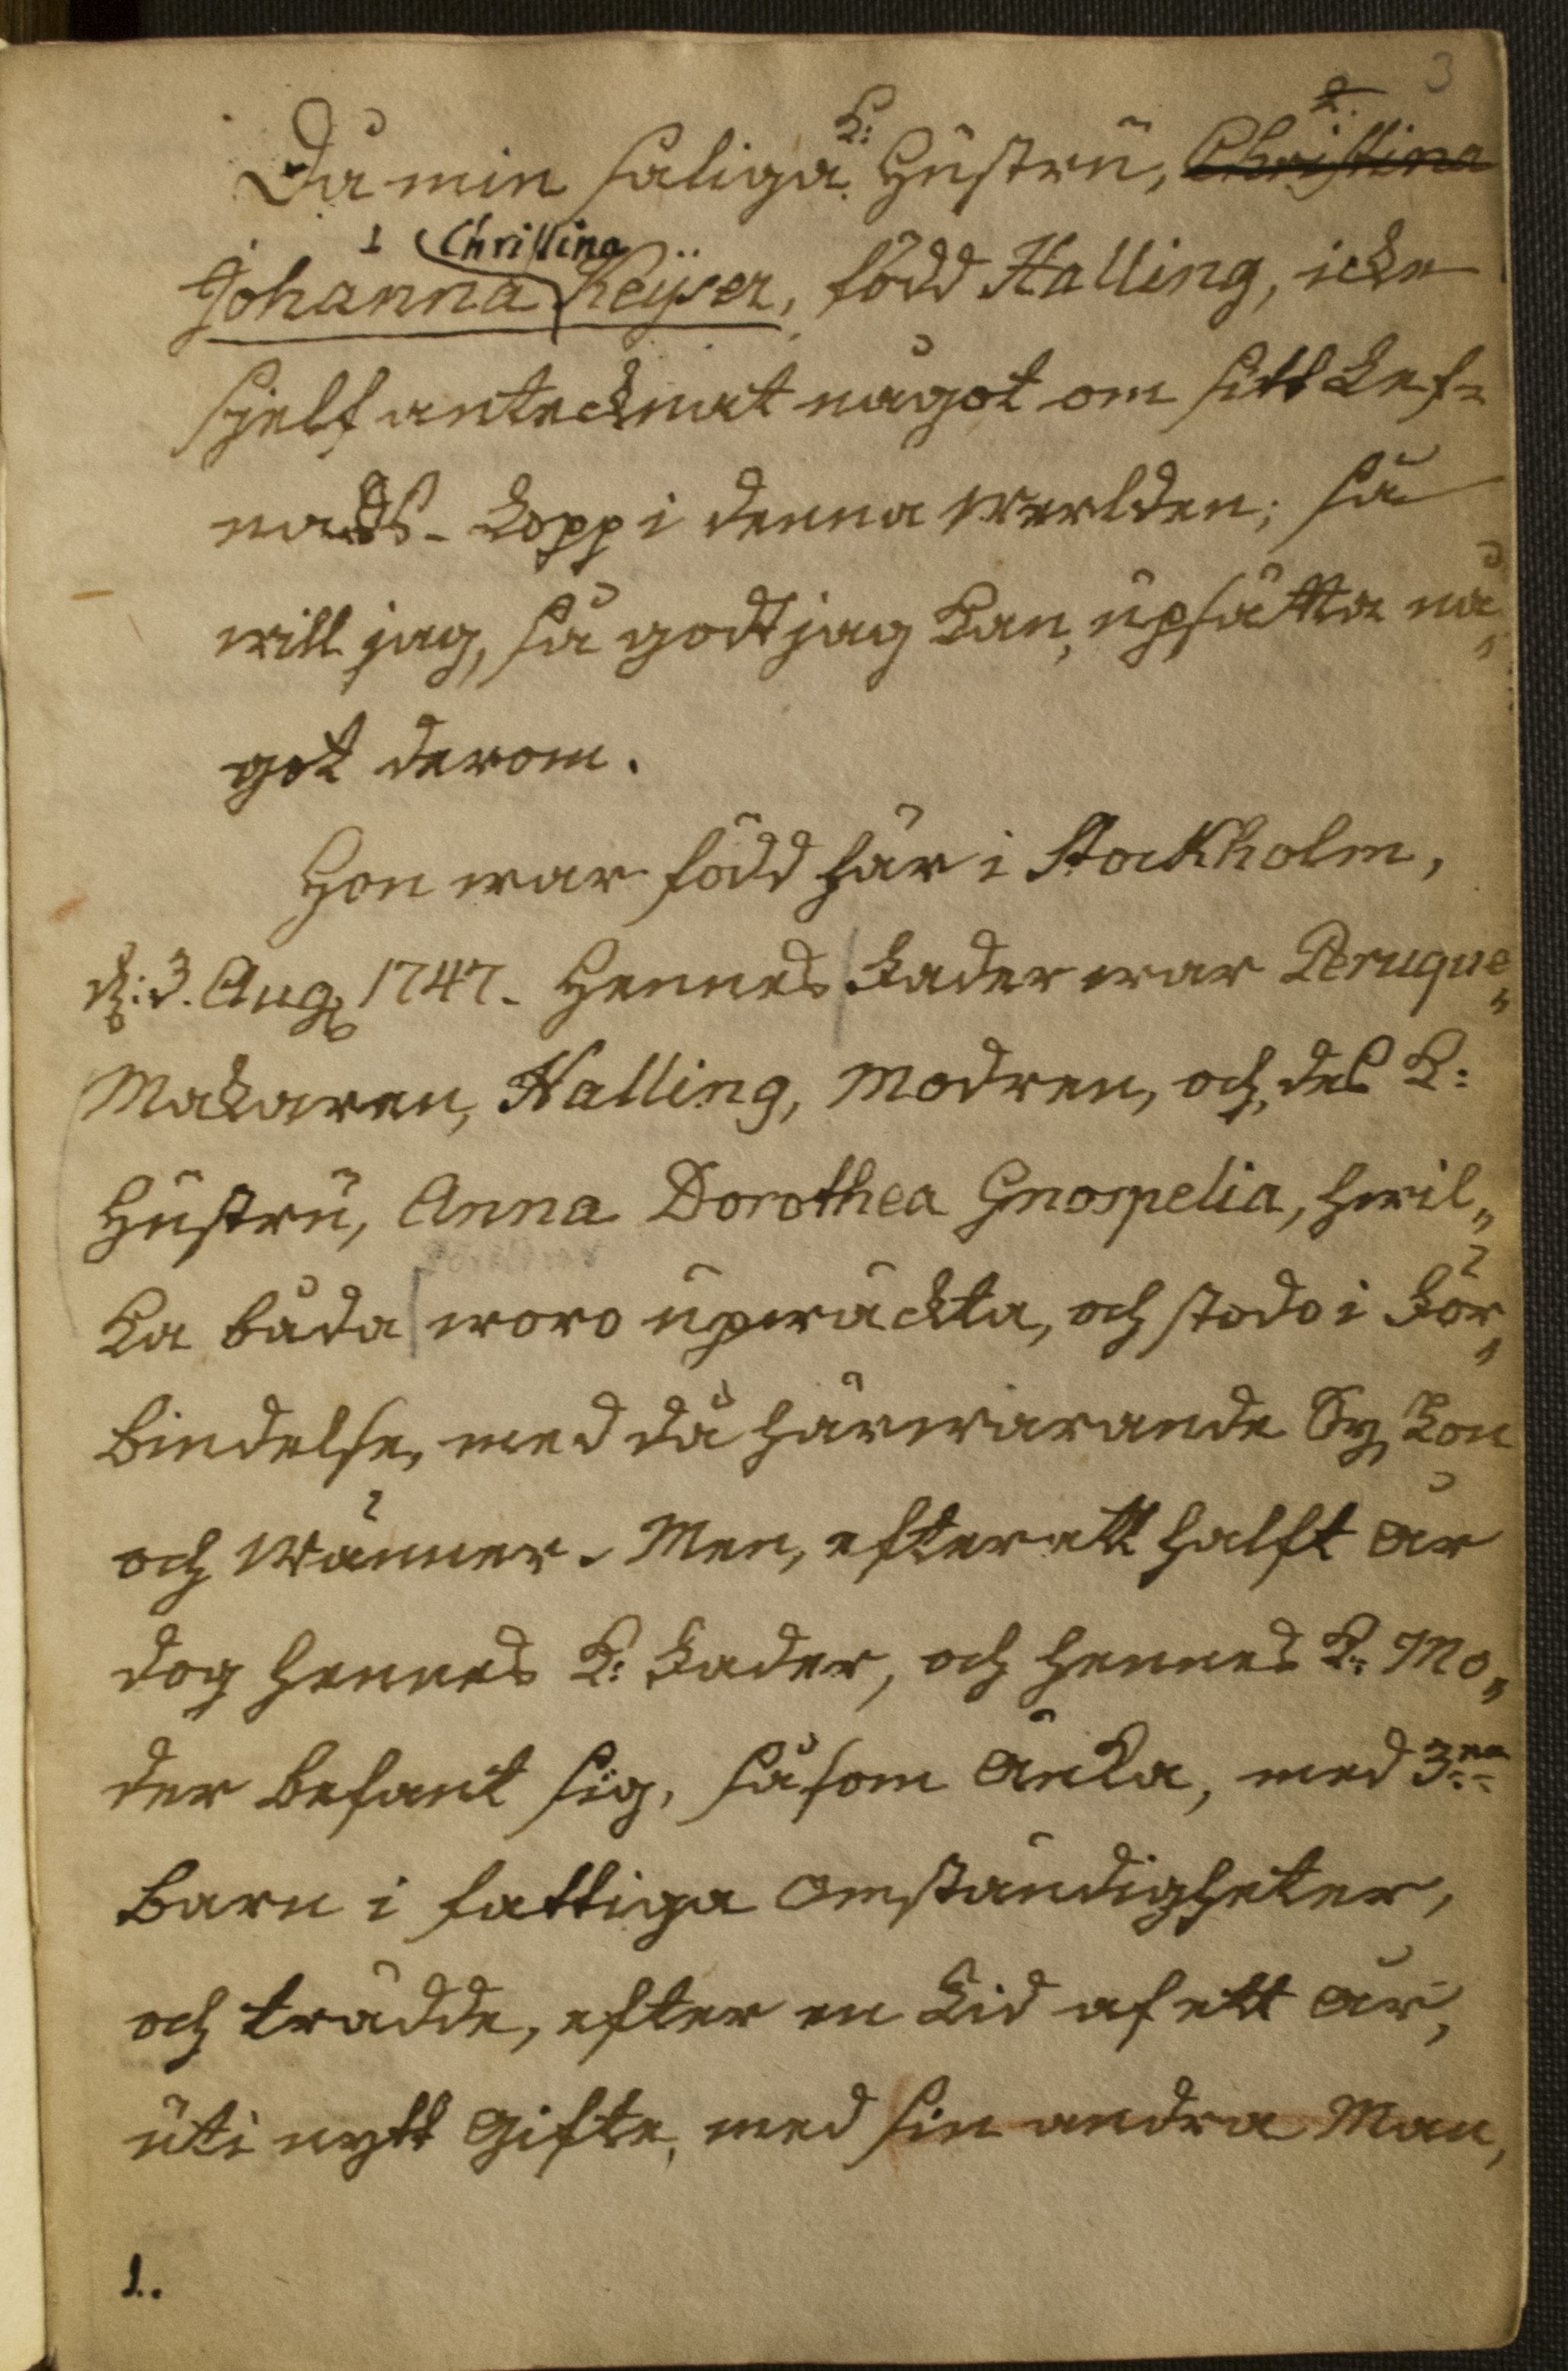 3
Då min saliga K: Hustru, Christina 2.
1 Christina
Johanna Keijser, född Halling, icke
sjelf antecknat något om sitt Lef-
nads-Lopp i denna Werlden; så
will jag, så godt jag kan, upsätta nå„
got derom.
Hon war född här i Stockholm,
d: 3. Aug. 1747. Hennes Fader war Peruque„
Makaren, Halling, Modren, och, des K:
Hustru, Anna Dorothea Gnospelia, hwil„
ka båda woro upwäckta, och stodo i För„
bindelse, med då härwarande Syskon
och Wänner. Men, efter ett halft år
dog hennes K: Fader, och hennes K: Mo„
der befant sig, såsom Änka, med 3:ne
Barn i fattiga Omständigheter,
och trädde, efter en Tid af ett år,
uti nytt Gifte, med sin andra Man,
1.